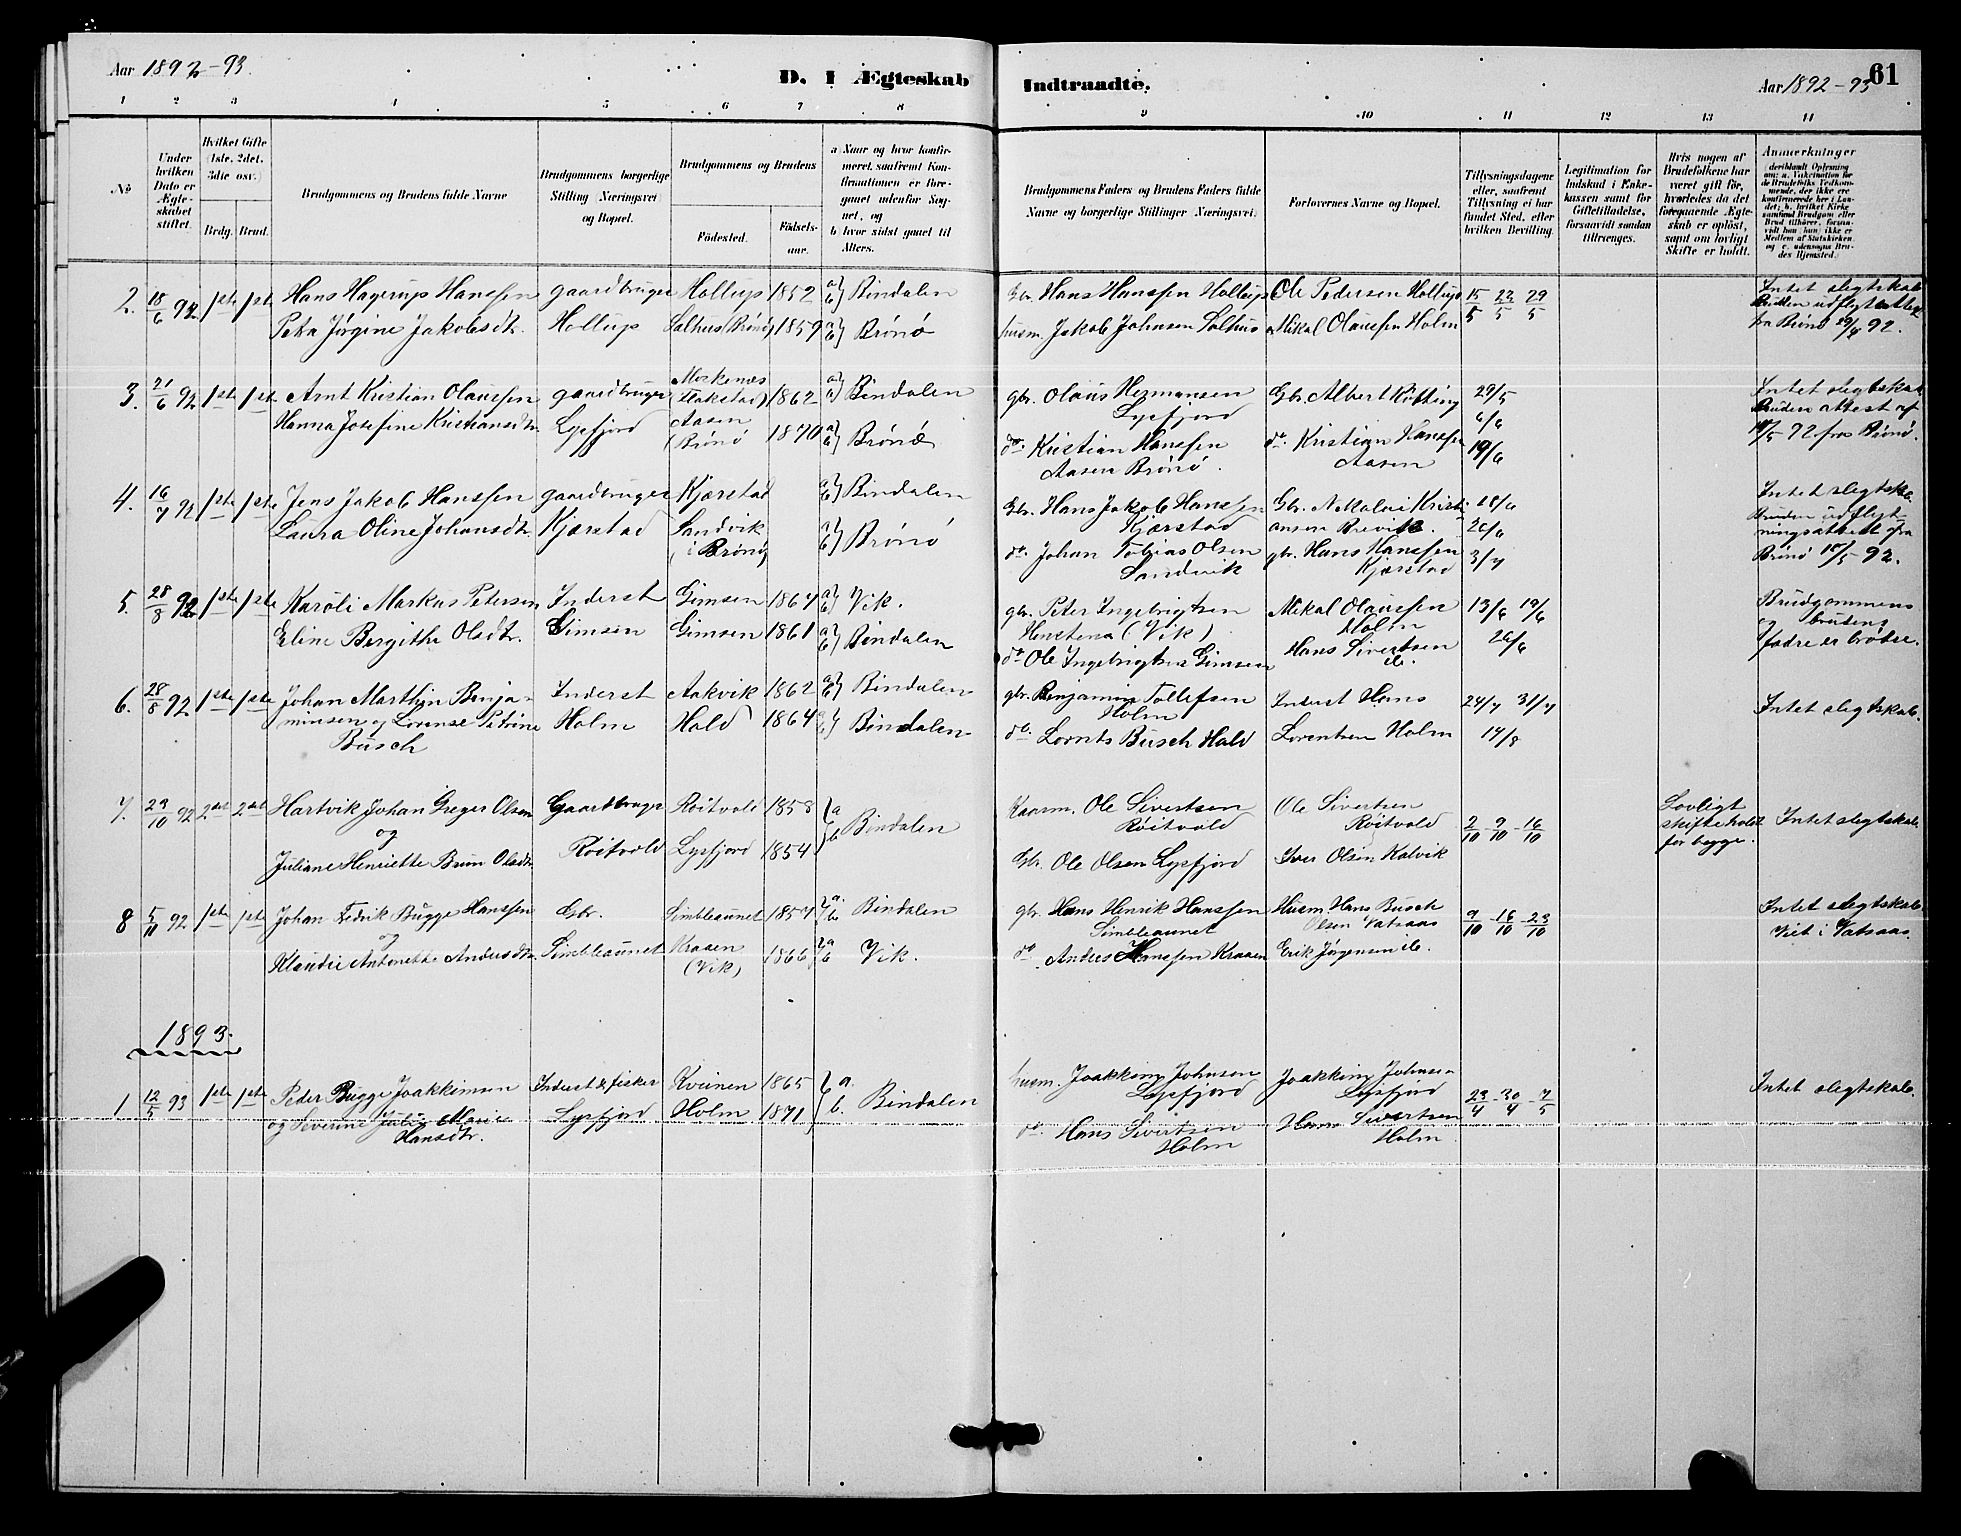 Aar 1892-93.
D. I Ægteskab
Indtraadte.
Aar 1892-93
61
1 2 3 4 5 6 7 8
9 10 11 12 13 14
№
Under hvilken Dato er Ægteskabet stiftet.
Hvilket Gifte (1ste, 2det, 3die osv.)
Brdg. Brud.
Brudgommens og Brudens fulde Navne
Brudgommens borgerlige Stilling (Næringsvei) og Bopæl.
Brudgommens og Brudens
Fødested.
Fødselsaar.
a Naar og hvor konfirmeret, saafremt Konfirmationen er foregaaet udenfor Sognet, og
b hvor sidst gaaet til Alters.
Brudgommens Faders og Brudens Faders fulde Navne og borgerlige Stillinger (Næringsvei).
Forlovernes Navne og Bopæl.
Tillysningsdagene eller, saafremt Tillysning ei har fundet Sted, efter hvilken Bevilling.
Legitimation for Indskud i Enkekassen samt for Giftetilladelse, forsaavidt saadan tiltrænges.
Hvis nogen af Brudefolkene har været gift før, hvorledes da det foregaaende Ægteskab er opløst, samt om lovligt Skifte er holdt.
Anmerkninger
2. 18/6 92 1ste 1ste Hans Hagerup Hanssen gaardbruger Hollup 1852 a) b) Bindalen Gbr. Hans Hanssen Hollup Ole Pedersen Hollup 15/5 22/5 29/5 Intet slegtskab
Petra Jørgine Jakobsdtr. Hollup Salhus (Brønø) 1859 a) b) Brønø husm. Jakob Johnsen Salhus Mikal Olaussen Holm Bruden udflytn.attest
fra Brønø 29/4 92.
3. 21/6 92 1ste 1ste Arnt Kristian Olaussen gaardbruger Moskenæs (Flakstad) 1862 a) b) Bindalen gbr. Olaus Hermansen Lysfjord Gbr. Albert Kølting 29/5 Intet slegtskab
Hanna Josefine Kristiansdtr. Lysfjord Aasen (Brønø 1870 a) b) Brønø do. Kristian Hanssen Aasen Brønø. do. Kristian Hanssen Aasen 6/6 19/6 Brudens attest af
/5 92 fra Brønø.
4. 16/7 92 1ste 1ste Jens Jakob Hanssen gaardbruger Kjærstad a) b) Bindalen Gbr. Hans Jakob Hanssen Kjærstad Gbr. Nikolai Kristiansen Brevik. 18/6 Intet slegtskab.
Laura Oline Johansdtr. Kjærstad Sandvik i Brønø a) b) Brønø do. Johan Tobias Olsen Sandvik gbr. Hans Hanssen Kjærstad 26/6 3/7 Bruden udflytningsattest fra
Brønø 18/5 92.
5. 28/8 92 1ste 1ste Karoli Markus Petersen Inderst Gimsen 1864 a) b) Vik. gbr. Peter Ingebrigtsen (Vik) Mikal Olaussen Holm 13/6 19/6 Brudgommens og brudens
Eline Bergithe Olsdtr. Gimsen Gimsen 1861 a) b) Bindalen do Ole Ingebrigtsen Gimsen Hans Sivertsen ib. 26/6 fadre er brødre.
6. 28/8 92 1ste 1ste Johan Marthin Benjaminsen og Lorense Petrine Busch Inderst Aakvik 1862 a) b) Bindalen gbr. Benjamin Tollefsen Holm Inderst Hans 24/7 31/7 Intet slegtskab.
Holm Hald 1864 Bindalen do. Lornts Busch Hald Lorentsen Holm 14/8
7. 23/10 92 2det 2det Hartvik Johan Greger Olsen Gaardbruger Røitvold 1858 a b Bindalen Kaarm. Ole Sivertsen Røitvold Ole Sivertsen Røitvold 2/10 - 9/10 - 16/10 Lovligt skifte holdt for begge. Intet slegtskab.
og
Juliane Henriette Brun Olsdtr. Røitvold Lysfjord 1854 Gbr. Ole Olsen Lysfjord Iver Olsen Kalvik
8 5/11 92 1ste 1ste Johan Fedrik Bugge Hanssen Gbr. Simbleaunet 1857 a. b Bindalen gbr. Hans Henrik Hanssen Simbleaunet Husm. Hans Busch Olsen Vatsaas 9/10 - 16/10 - 23/10 Intet slegtskab.
og
Klaudie Antonette Andersdtr. Simbleaunet Kraaen (Vik) 1866 a b Vik. do Anders Hanssen Kraaen Erik Jørgensen ib. Viet i Vatsaas.
1893.
1 12/5 93 1ste 1ste Peder Bugge Joakkimsen Inderst & fisker Kveinen 1865 a. b. Bindalen husm. Joakkim Johnsen Lysfjord Joakkim Johnsen Lysfjord 23/4 - 30/4 - 7/5 Intet slegtskab.
og Severine Julie Marie Hansdtr. Lysfjord Holm 1871 do. Hans Sivertsen Holm Hans Sivertsen Holm